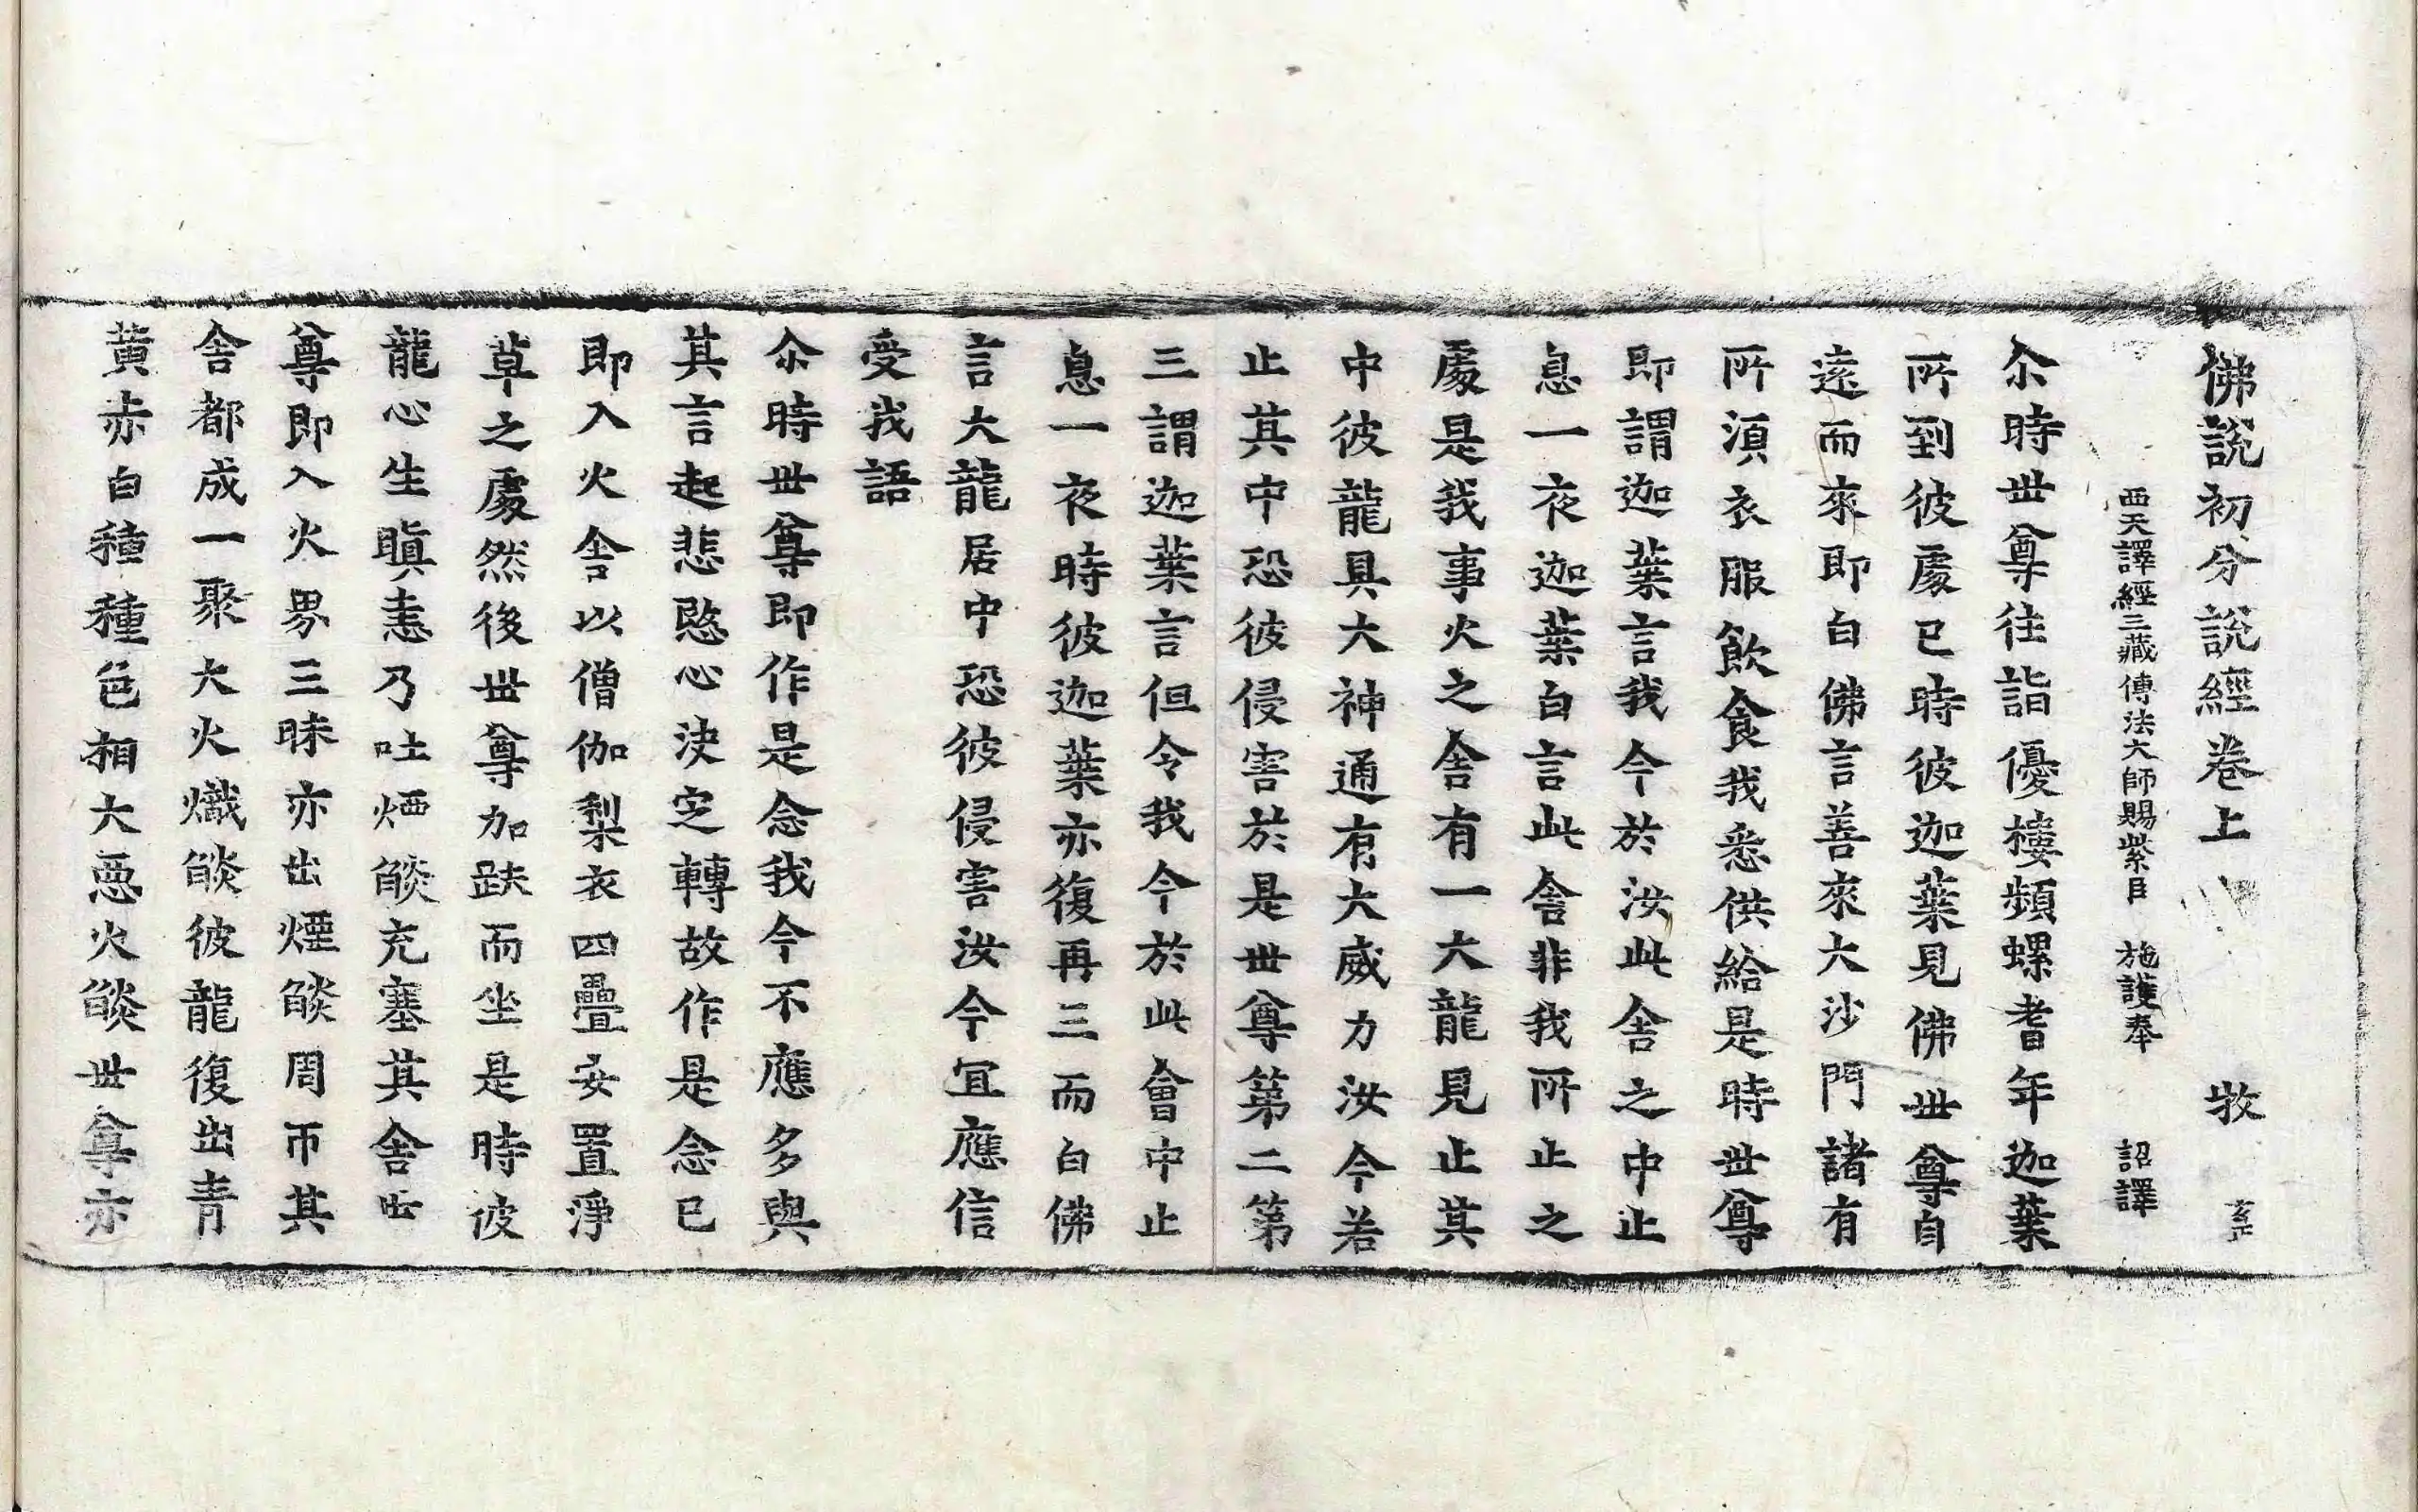 佛說初分說經卷上 牧
西天譯經三藏傳法大師賜紫臣 施護奉 詔譯
尒時世尊往詣優樓頻螺耆年迦葉
所到彼處已時彼迦葉見佛世尊自
遠而來即白佛言善來大沙門諸有
所須衣服飲食我悉供給是時世尊
即謂迦葉言我今於汝此舍之中止
息一夜迦葉白言此舍非我所止之
處是我事火之舍有一大龍見止其
中彼龍具大神通有大威力汝今若
止其中恐彼侵害於是世尊第二第
三謂迦葉言但令我今於此會中止
息一夜時彼迦葉亦復再三而白佛
言大龍居中恐彼侵害汝今宜應信
受我語
尒時世尊即作是念我今不應多與
其言起悲愍心決定轉故作是念已
即入火舍以僧伽梨衣四疊安置淨
草之處然後世尊加趺而坐是時彼
龍心生瞋恚乃吐煙𦦨充塞其舍世
尊即入火界三昧亦出煙𦦨周帀其
舍都成一聚大火熾𦦨彼龍復出青
黃赤白種種色相大惡火𦦨世尊亦